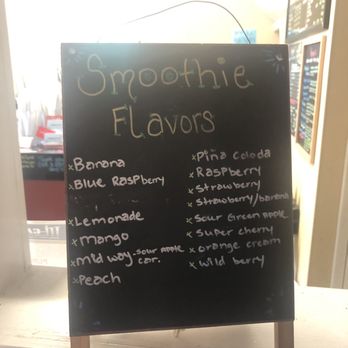 Smoothie
Flavors
x Banana
x Blue Raspberry
x Lemonade
x mango
x mid way - sour apple
car.
x Peach
x Piña Colada
x Raspberry
x strawberry
x strawberry/banana
x sour Green apple
x super cherry
x orange cream
x wild berry